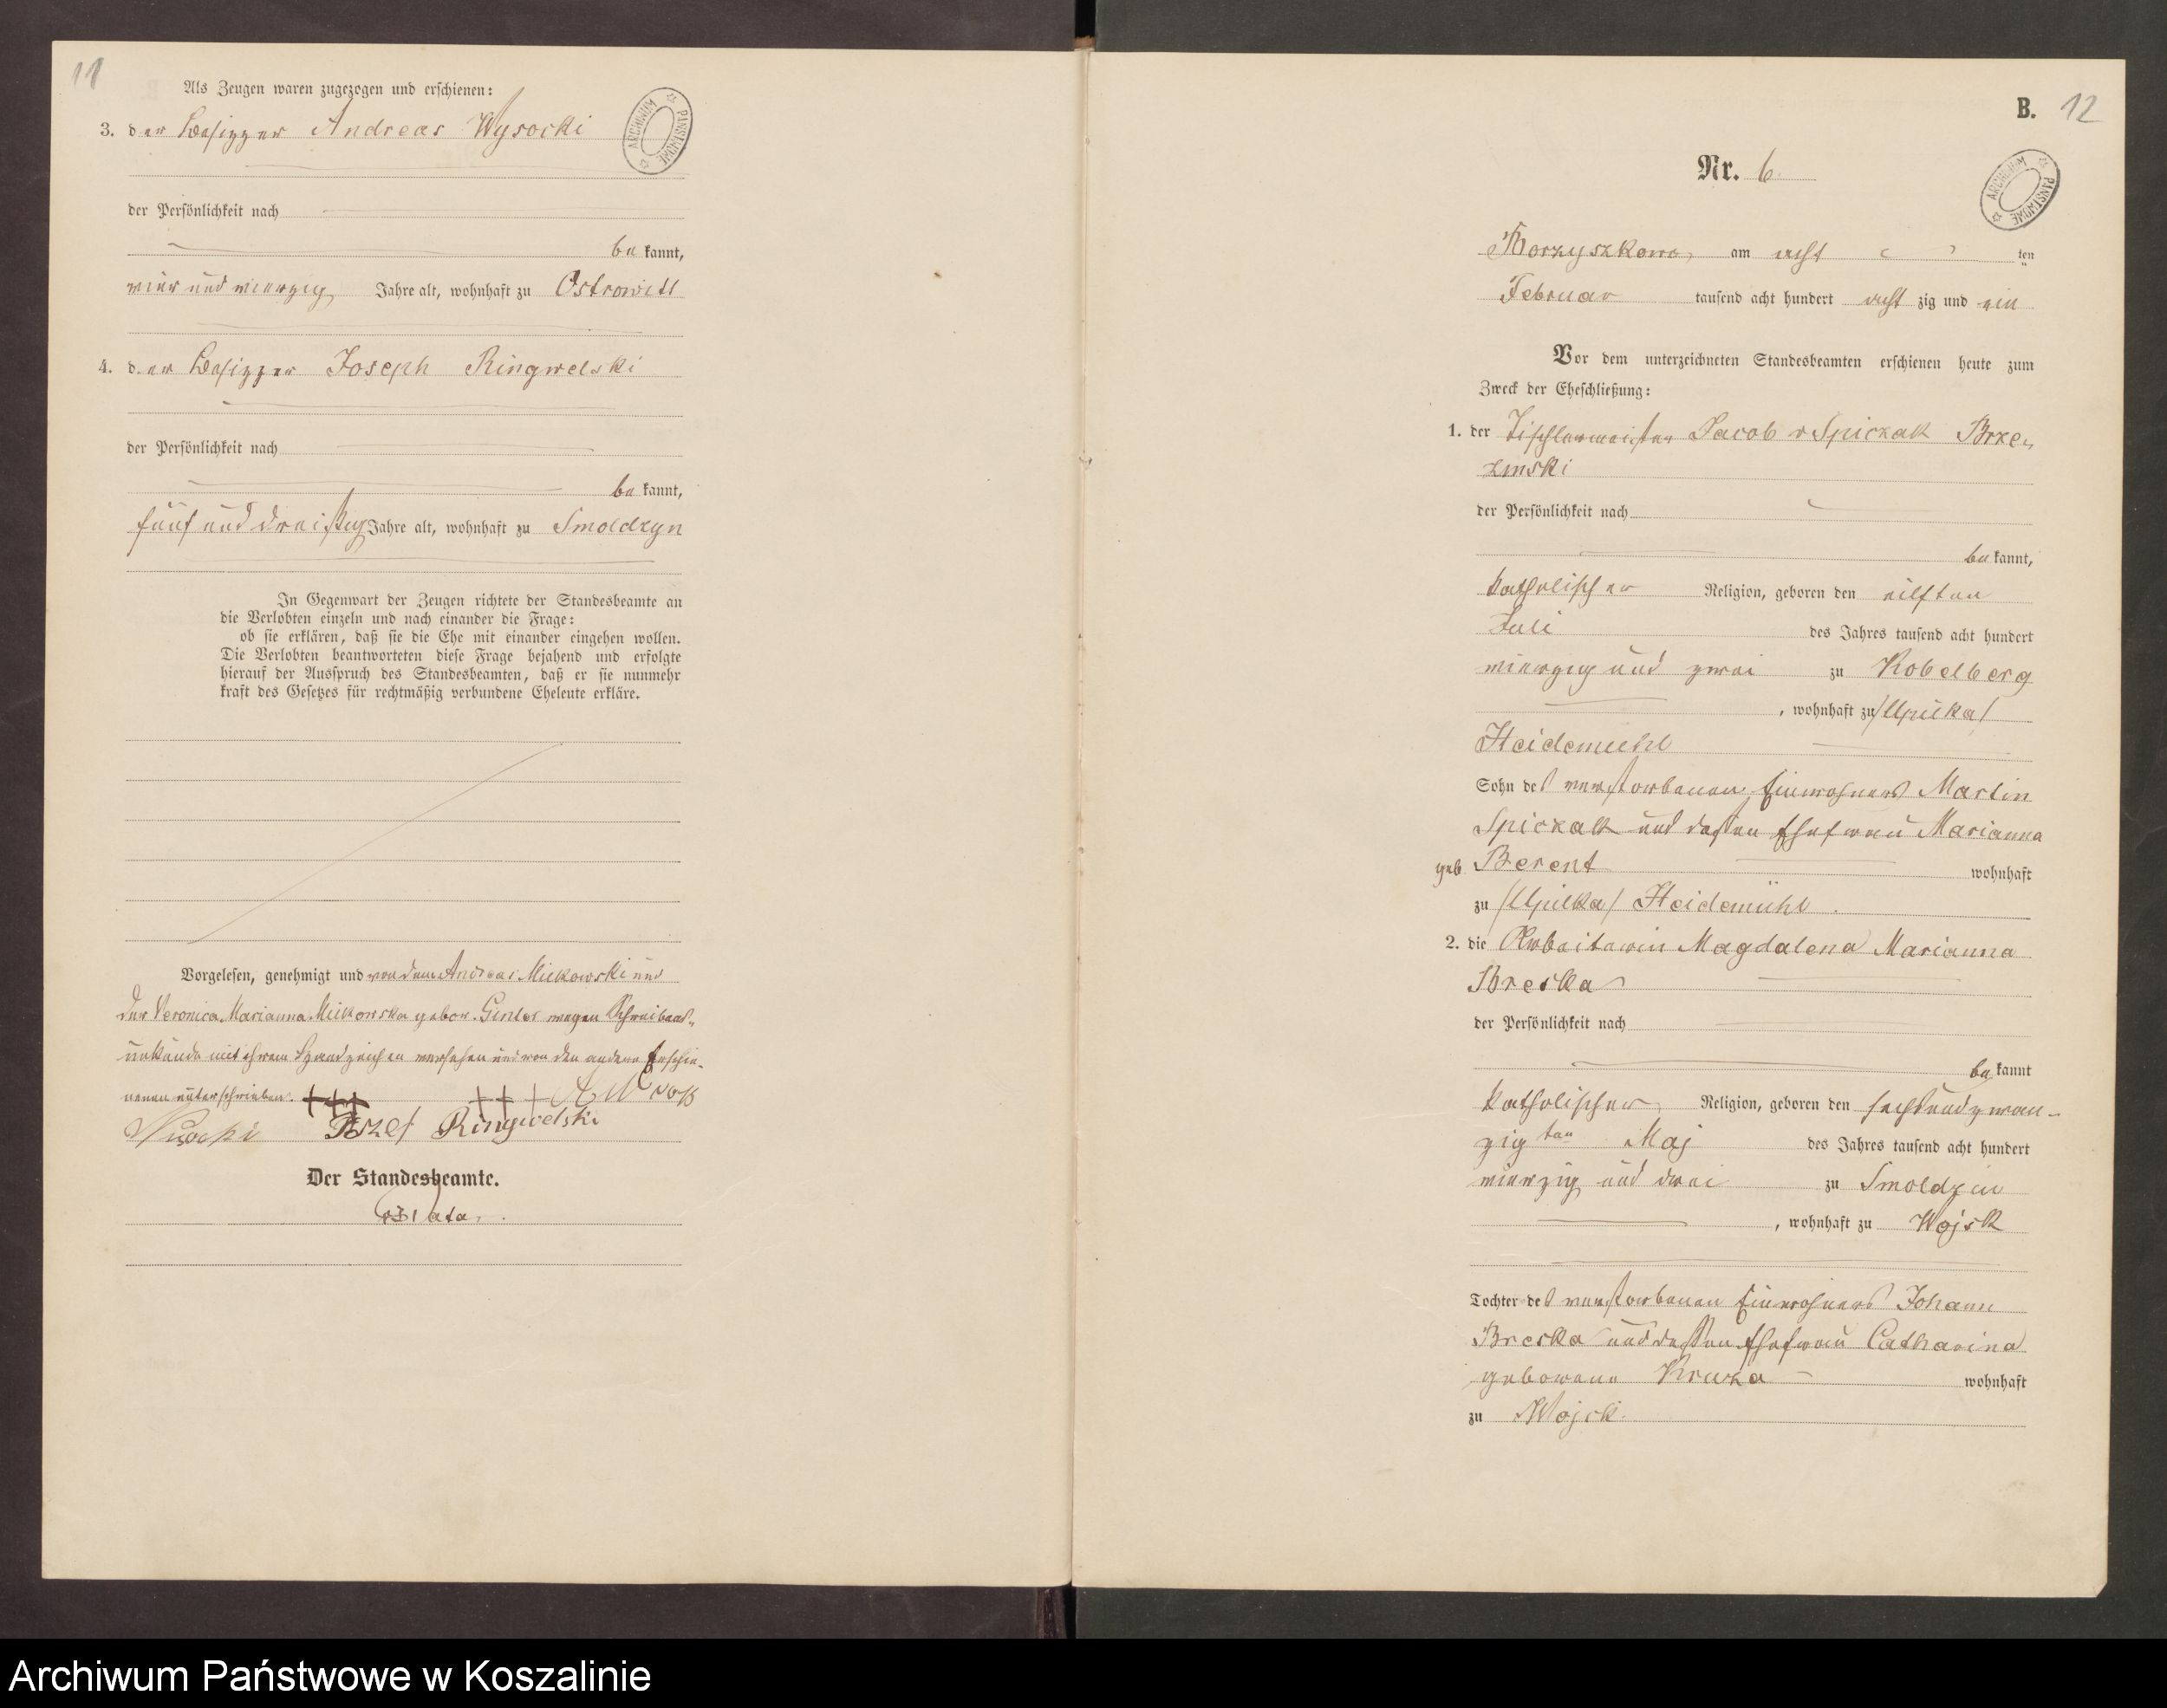 11
Als Zeugen waren zugezogen und erschienen:
3. der Besitzer Andreas Wysocki
der Persönlichkeit nach
be kannt,
vier und vierzig Jahre alt, wohnhaft zu Ostrowitt
4. der Besitzer Joseph Ringwelski
der Persönlichkeit nach
be kannt,
fünf und dreißig Jahre alt, wohnhaft zu Smoldzyn
In Gegenwart der Zeugen richtete der Standesbeamte an
die Verlobten einzeln und nach einander die Frage:
ob sie erklären, daß sie die Ehe mit einander eingehen wollen.
Die Verlobten beantworteten diese Frage bejahend und erfolgte
hierauf der Ausspruch des Standesbeamten, daß er sie nunmehr
kraft des Gesetzes für rechtmäßig verbundene Eheleute erkläre.
Vorgelesen, genehmigt und von dem Andreas Mickowski und
der Veronica Marianna Mickowska gebor. Ginter wegen Schreibens-
unkunde mit ihrem Handzeichen versehen und von den andern Erschie-
nenen unterschrieben. +++ +++
Józef Ringwelski
Der Standesbeamte.
B.
12
Nr. 6.
Borzyszkowo, am acht ten
Februar tausend acht hundert acht zig und ein
Vor dem unterzeichneten Standesbeamten erschienen heute zum
Zweck der Eheschließung:
1. der Tischlermeister Jacob v Spiczak Brze-
zinski
der Persönlichkeit nach
be kannt,
katholischer Religion, geboren den eilften
Juli des Jahres tausend acht hundert
vierzig und zwei zu Kobelberg
, wohnhaft zu /Upilka/
Heidemühl
Sohn des verstorbenen Einwohners Martin
Spiczak und dessen Ehefrau Marianna
geb. Berent wohnhaft
zu /Upilka/ Heidemühl.
2. die Arbeiterin Magdalena Marianna
Breska
der Persönlichkeit nach
be kannt
katholischer Religion, geboren den sechsundzwan-
zigten Maj des Jahres tausend acht hundert
vierzig und drei zu Smoldzin
, wohnhaft zu Wojsk
Tochter des verstorbenen Einwohners Johann
Breska und dessen Ehefrau Catharina
geborene Kruza wohnhaft
zu Wojsk.
ARCHIWUM PAŃSTWOWE
ARCHIWUM PAŃSTWOWE
Archiwum Państwowe w Koszalinie